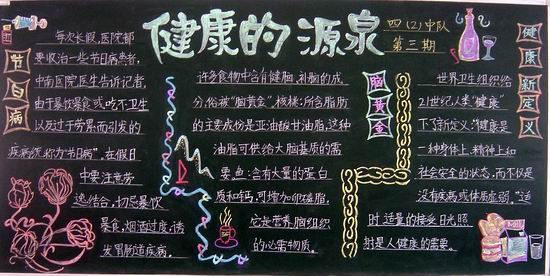 健康的源泉
四（2）中队
第三期
节日病
每次长假，医院都
要收治一些节日病患者，
中南医院医生告诉记者，
由于暴饮暴食或吃不卫生
以及过于劳累而引发的
疾病统称为“节日病”，在假日
中要注意劳
逸结合，切忌暴饮
暴食，烟酒过度，诱
发胃肠道疾病。
脑黄金
许多食物中含有健脑、补脑的成
分，俗被“脑黄金”核桃：所含脂肪
的主要成份是亚油酸甘油脂，这种
油脂可供给大脑基质的需
要。鱼：含有大量的蛋白
质和钙，可增加卵磷脂，
它是营养脑组织
的必需物质。
健康新定义
世界卫生组织给
21世纪人类“健康”
下了新定义：“健康是
一种身体上、精神上和
社会安全的状态，而不仅是
没有疾病或体质虚弱。”适
时适量的接受日光照
射是人健康的需要。